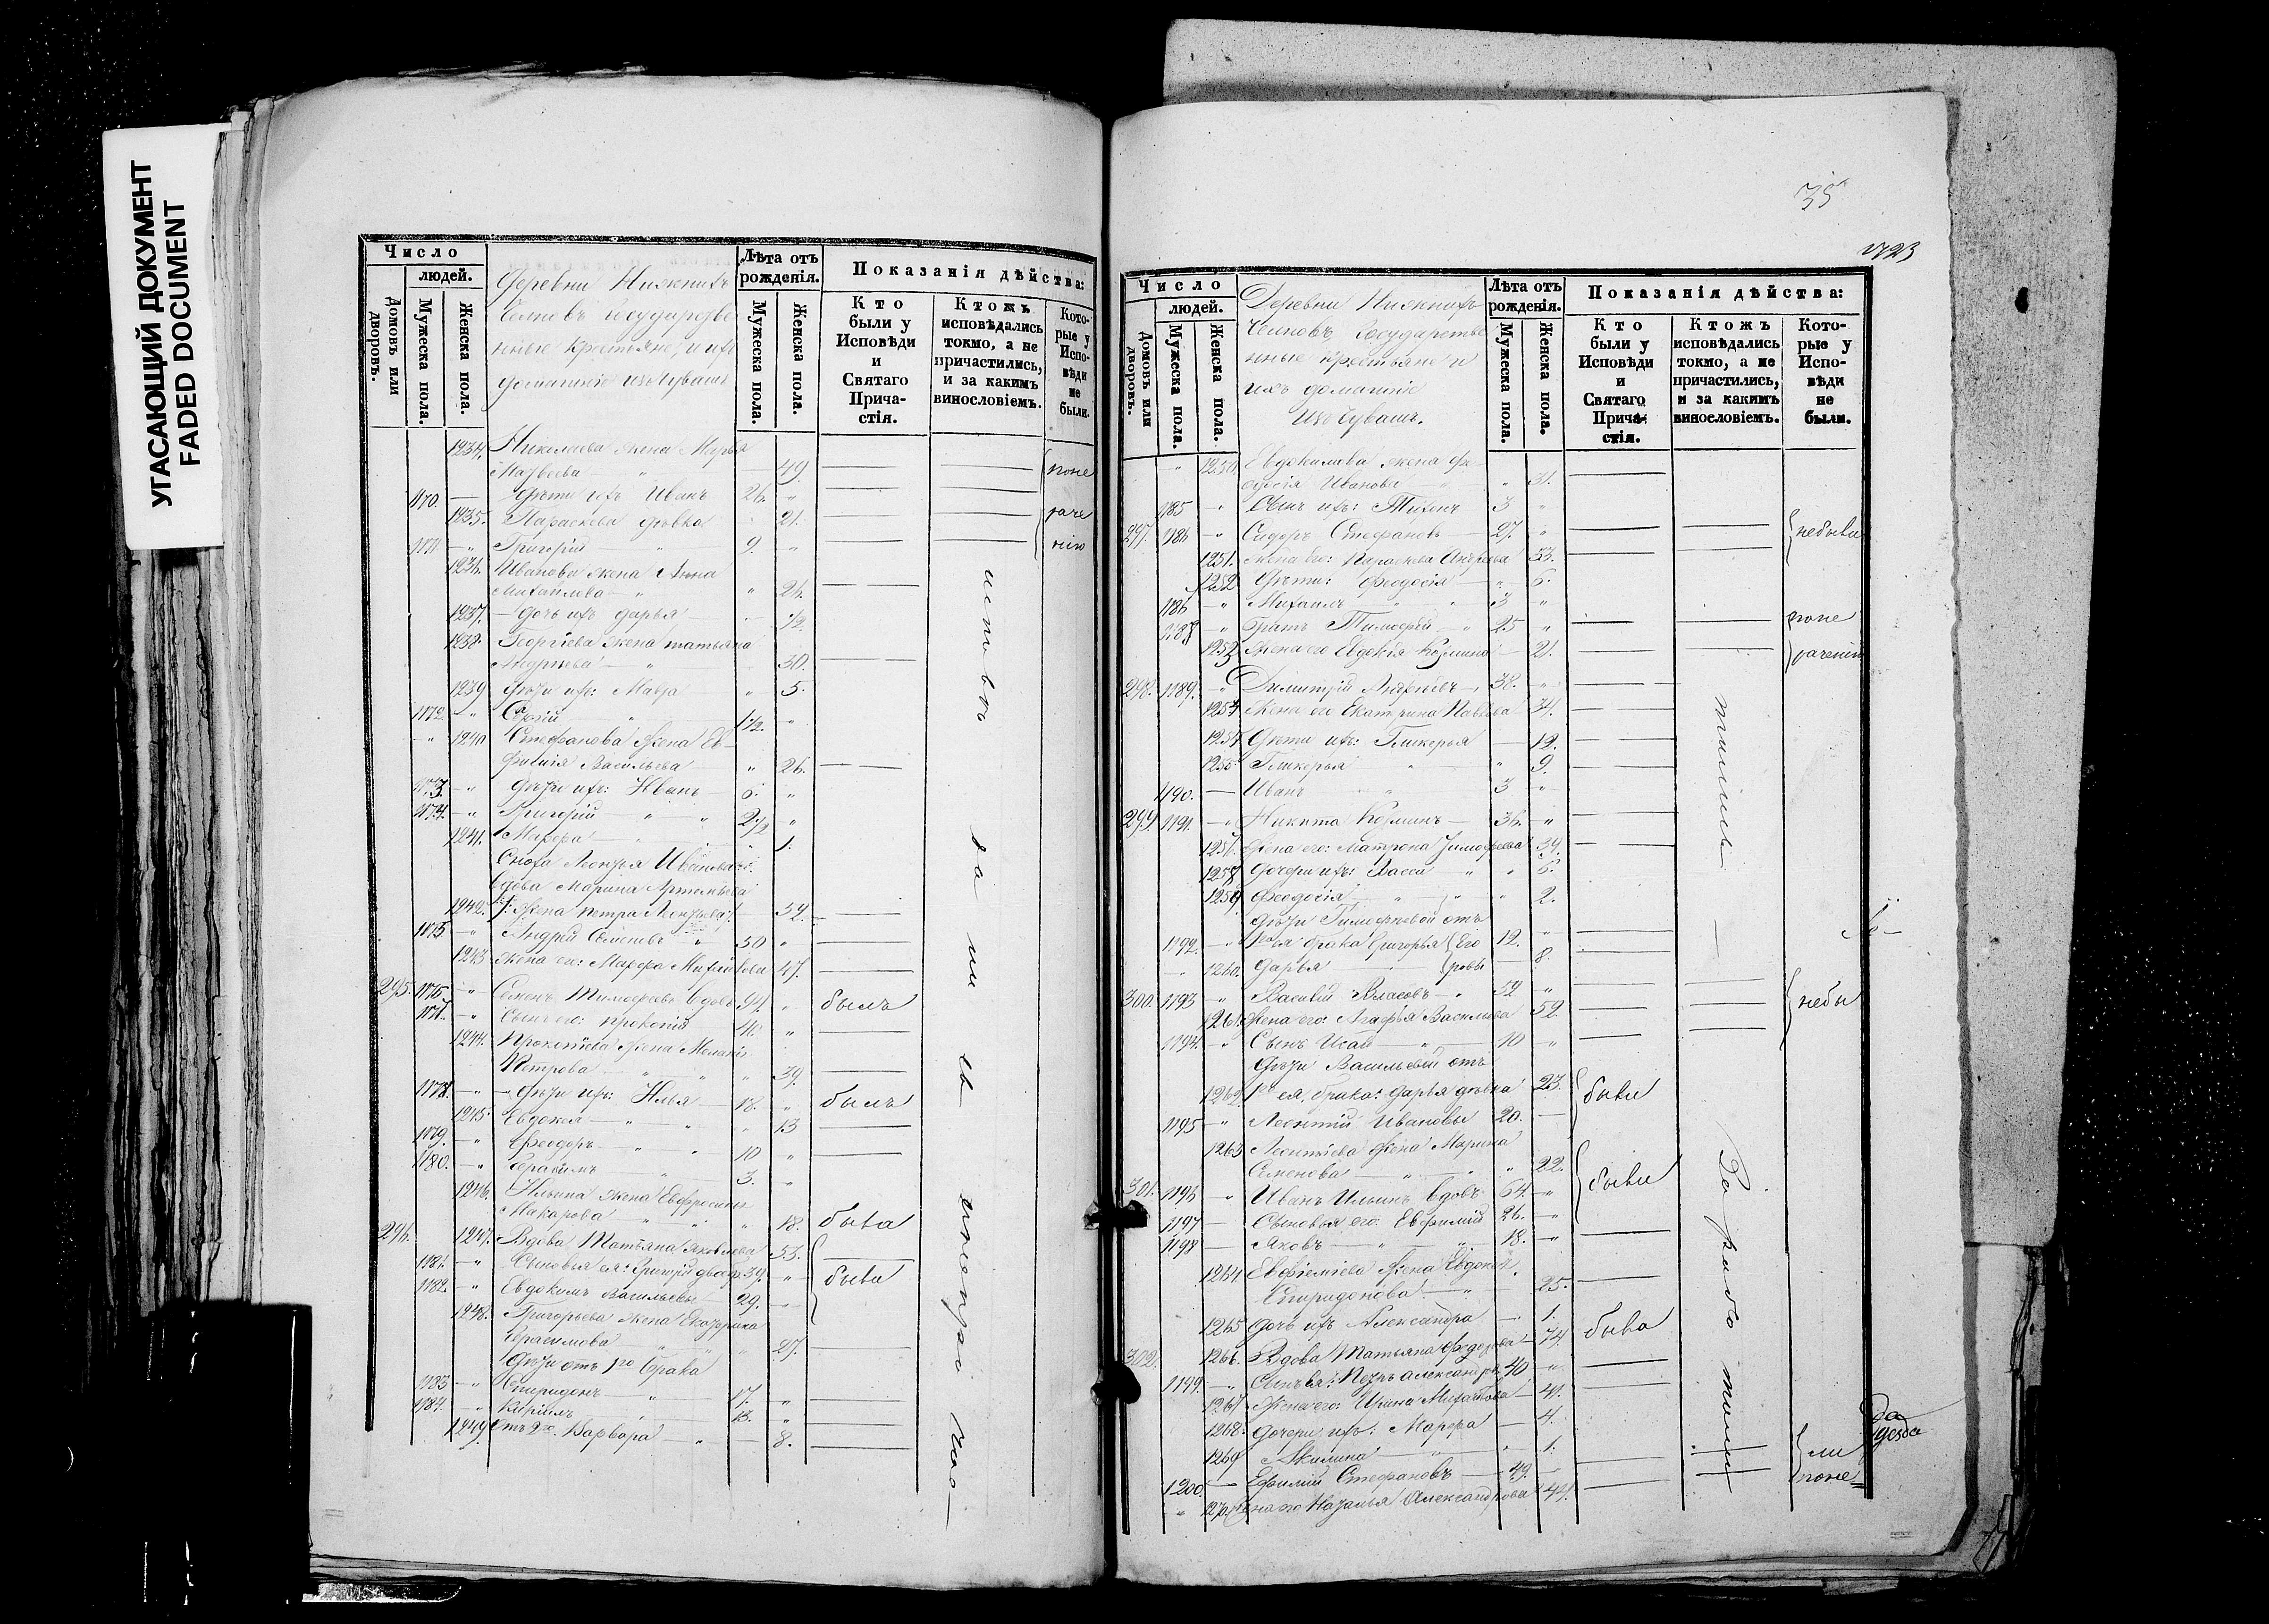 УГАСАЮЩИЙ ДОКУМЕНТ
FADED DOCUMENT
Число
людей.
Домовъ или дворовъ.
Мужеска пола.
Женска пола.
Деревни Нижнихъ
государстве
нные крестьяне, и ихъ
домашніе изъ Чувашъ
Лѣта отъ рожденія.
Мужеска пола.
Женска пола.
Показанія дѣйства:
Кто были у Исповѣди и Святаго Прича-стія.
Ктожъ исповѣдались токмо, а не причастились, и за какимъ винословіемъ.
Кото-рые у Испо-вѣди не были.
1234. Николаева жена Марья
Матвеева 49. поне
1170. Дѣти ихъ Иванъ 26.
1235. Параскева дѣвка 21. раче
1171 Григорій 9. нію
1236. Иванова жена Анна
Михайлова 26.
1237. дочь ихъ Дарья 1/2
1238 Георгіева жена Татьяна
Андреева 30.
1239 Дѣти ихъ: Мавра 5.
1172. Сергій 1 1/2.
1240 Стефанова жена Ев-
фимія Васильева 26.
1173. Дѣти ихъ: Иванъ 6.
1174. Григорій 2 1/2
1241. Марфа 1.
Сноха Леонтья Иванова
вдова Марина Артемьева
1242. жена Петра Леонтьева 52.
1175 Андрей Семеновъ 50
1243 жена его: Марфа Михайлова 47.
295. 1176 Семенъ Тимофеевъ вдовъ 94. былъ
1177. Сынъ его: Прокопій 40.
1244. Прокопіева жена Меланія
Петрова 39.
1178. Дѣти ихъ: Илья 18. былъ
1245 Евдокея 13
1179. Феодоръ 10
1180. Герасимъ 3.
1246. Ильина жена Евфросинья
Макарова 18. была
296. 1247. Вдова Татьяна Яковлева 53.
1181. Сыновья ея: Григорій 39. были
1182. Евдокимъ Васильевы 29.
1248. Григорьева жена Екатерина
Герасимова 27.
Дѣти отъ 1го брака
1183 Спиридонъ 17.
1184. Кирилъ 13.
1249 Отъ 2го Варвара 8.
исповѣ
35
1723
Число
людей.
Домовъ или дворовъ.
Мужеска пола.
Женска пола.
Деревни Нижнихъ
государстве
нные крестьяне и
ихъ домашніе
изъ Чувашъ.
Лѣта отъ рожденія.
Мужеска пола.
Женска пола.
Показанія дѣйства:
Кто были у Исповѣди и Святаго Прича-стія.
Ктожъ исповѣдались токмо, а не причастились, и за какимъ винословіемъ.
Кото-рые у Испо-вѣди не были.
1250. Евдокимова жена Фе
досія Иванова 31.
1185 Сынъ ихъ: Тихонъ 3
297. 1186 Сидоръ Стефановъ 27. небыли
1251. Жена его: Параскева Андреева 33.
1252 Дѣти: Феодосія 6.
1186 Михаилъ 3
1188 Братъ Тимофей 25 поне
1253 Жена его Евдокія Козмина 21. раченію
298. 1189. Димитрій Андреевъ 38.
1254 Жена его Екатерина Павлова 34.
1254 Дѣти ихъ: Гликерья 12.
1255. Гликерья 9.
1190. Иванъ 3
299 1191. Никита Козминъ 36.
1257. Жена его: Матрона Тимофеева 34.
1258 Дочери ихъ: 6.
1259 Феодосія 2.
Дѣти Тимофеевой отъ
1192. брака Григорья 12.
1260. Дарья 8.
300. 1193 Василій Власовъ 52
1261 Жена его: Агафья Васильева 52. небы
1194. Сынъ Исай 10
Дѣти Васильевой отъ
1262 1го ея, брака: Дарья дѣвка 23. были
1195 Леонтій Ивановы 20.
1263 Леонтіева жена Марина
Семенова 22. были
301. 1196 Иванъ Ильинъ вдовъ 64.
1197 Сыновья его: Евфимій 26.
1198 Яковъ 18.
1264 Евфиміева жена Евдокія
Спиридонова 25.
1265 дочь ихъ Александра 1.
302. 1266. Вдова Татьяна Федорова 74. была
1199 Сынъ ея: Петръ Александровъ 40
1267 Жена его: Ирина Михайлова 41.
1268. Дочери ихъ: Марфа 4.
1269 Акилина 1.
1200. Ефимій Стефановъ 49.
1270. Жена его Наталья Александрова 44. поне